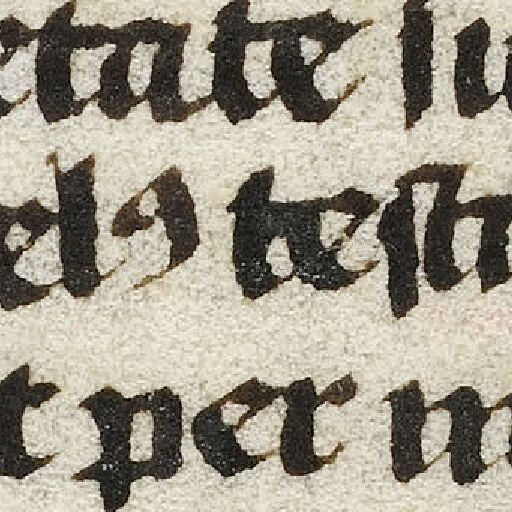 etate te su
elꝯ testi
t per m